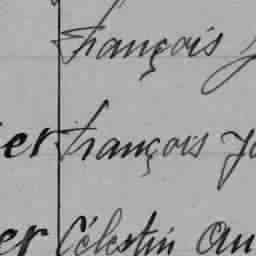 François J
ier François Jo
er Célestin Au